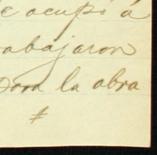 e ocupó á
abajaron
para la obra
#